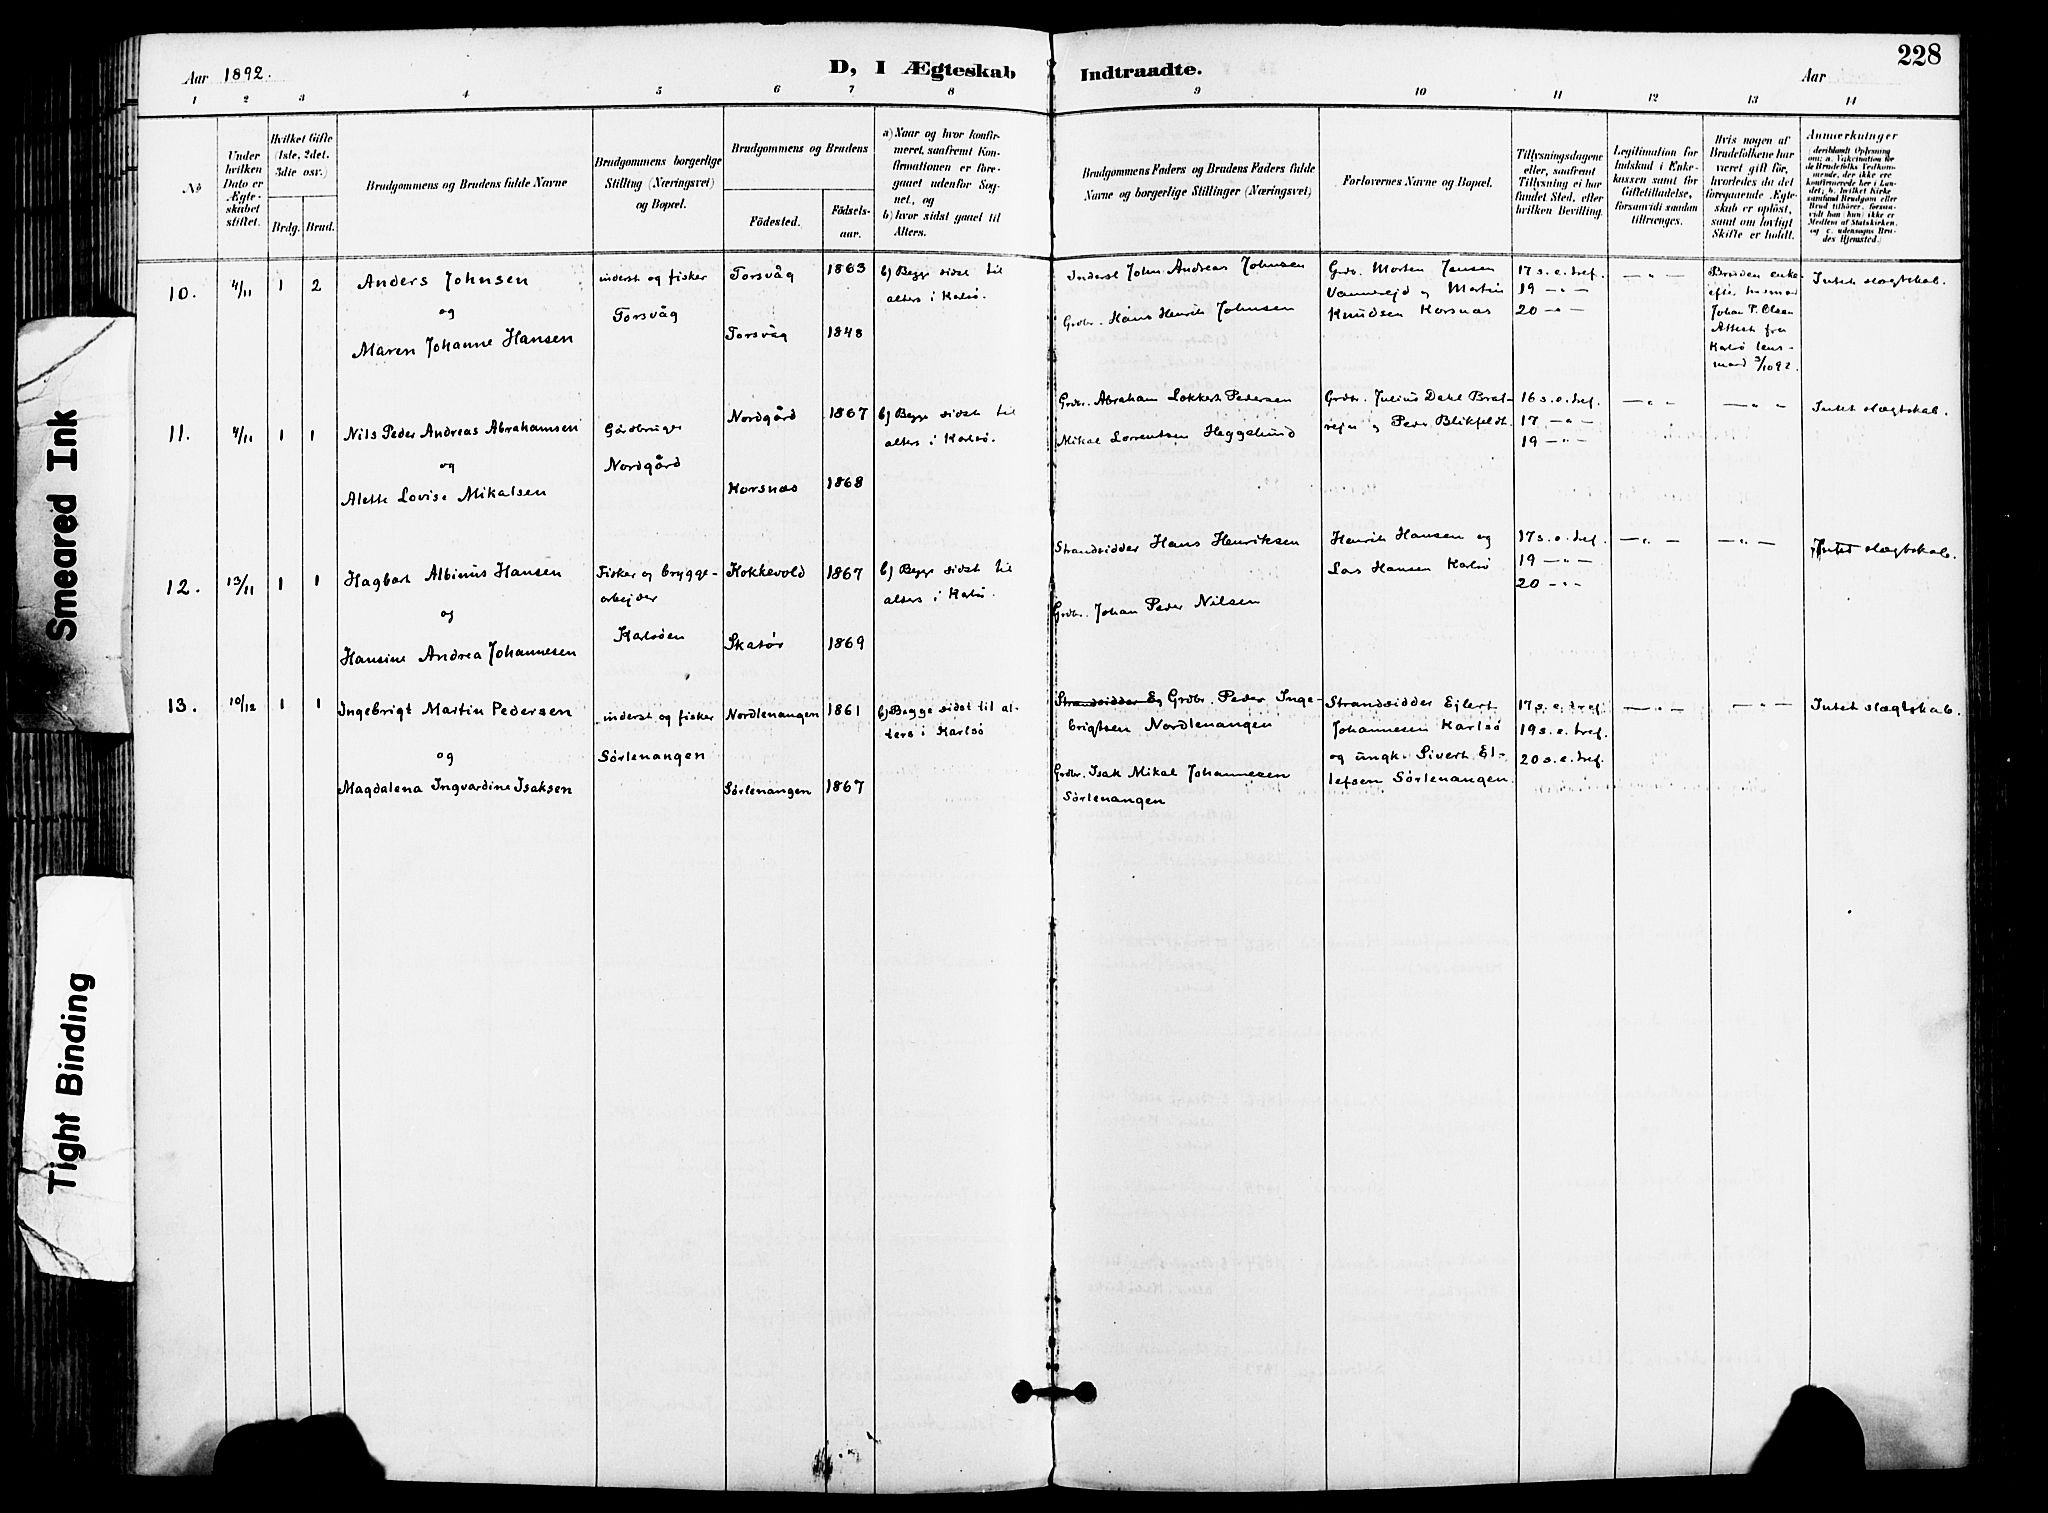 228
Aar 1892.
D, I Ægteskab
Indtraadte.
Aar
1 2 3 4 5 6 7 8 9 10 11 12 13 14
No
Under
hvilken
Dato er
Ægte-
skabet
stiftet.
Hvilket Gifte
(1ste, 2det,
3die osv.)
Brdg. Brud.
Brudgommens og Brudens fulde Navne
Brudgommens borgerlige
Stilling (Næringsvei)
og Bopæl.
Brudgommens og Brudens
Födested.
Födsels-
aar.
a) Naar og hvor konfir-
meret, saafremt Kon-
firmationen er fore-
gaaet udenfor Sog-
net, og
b) hvor sidst gaaet til
Alters.
Brudgommens Faders og Brudens Faders fulde
Navne og borgerlige Stillinger (Næringsvei)
Forlovernes Navne og Bopæl.
Tillysningsdagene
eller, saafremt
Tillysning ei har
fundet Sted, efter
hvilken Bevilling.
Legitimation for
Indskud i Enke-
kassen samt for
Giftetilladelse,
forsaavidt saadan
tiltrænges.
Hvis nogen af
Brudefolkene har
været gift för,
hvorledes da det
foregaaende Ægte-
skab er oplöst,
samt om lovligt
Skifte er holdt.
Anmerkninger
(deriblandt Oplysning
om: a. Vakcination for
de Brudefolks Vedkom-
mende, der ikke ere
konfirmerede her i Lan-
det; b. hvilket Kirke-
samfund Brudgom eller
Brud tilhörer, forsaa-
vidt han (hun) ikke er
Medlem af Statskirken,
og c. udensogns Bru-
des Hjemsted.)
10. 4/11 1 2
Anders Johnsen
og
Maren Johanne Hansen
inderst og fisker
Torsvåg
Torsvåg 1863
Torsvåg 1848
b) Begge sidst til
alters i Karlsö.
Inderst John Andreas Johnsen
Grdbr. Hans Henrik Johnsen
Grdb. Morten Jensen
Vannereid og Martin
Knudsen Korsnæs
17 s. e. tref.
19 — " —
20 — " —
— " —
Bruden enke
efter husmand
Johan P. Olsen
Attest fra
Karlsö lens-
mand 3/10 92.
Intet slægtskab.
11. 4/11 1 1
Nils Peder Andreas Abrahamsen
og
Alette Lovise Mikalsen
Gårdbruger
Nordgård
Nordgård 1867
Korsnæs 1868
b) Begge sidst til
alters i Karlsö.
Grdbr. Abraham Lokkert Pedersen
Mikal Lorentsen Heggelund
Grdbr. Julius Dahl Bræt-
rejn og Peder Blikfeldt
16 s. e. tref.
17 — " —
19 — " —
— " —
— " —
Intet slægtskab.
12. 13/11 1 1
Hagbart Albinus Hansen
og
Hansine Andrea Johannesen
Fisker og brygge-
arbejder
Karlsöen
Kokkevold 1867
Skatör 1869
b) Begge sidst til
alters i Karlsö.
Strandsidder Hans Henriksen
Grdbr. Johan Peder Nilsen
Henrik Hansen og
Lars Hansen Karlsö
17 s. e. tref.
19 — " —
20 — " —
— " —
— " —
Intet slægtskab.
13. 10/12 1 1
Ingebrigt Martin Pedersen
og
Magdalena Ingvardine Isaksen
inderst og fisker
Sörlenangen
Nordlenangen 1861
Sörlenangen 1867
b) Begge sidst til al-
ters i Karlsö
Strandsidder Ej Grdbr. Peder Inge-
brigtsen Nordlenangen
Grdbr. Isak Mikal Johannesen
Sörlenangen
Strandsidder Ejlert
Johannesen Karlsö
og ungk. Sivert El-
lefsen Sörlenangen
17 s. e. tref.
19 s. e. tref.
20 s. e. tref.
— " —
— " —
Intet slægtskab.
Smeared Ink
Tight Binding